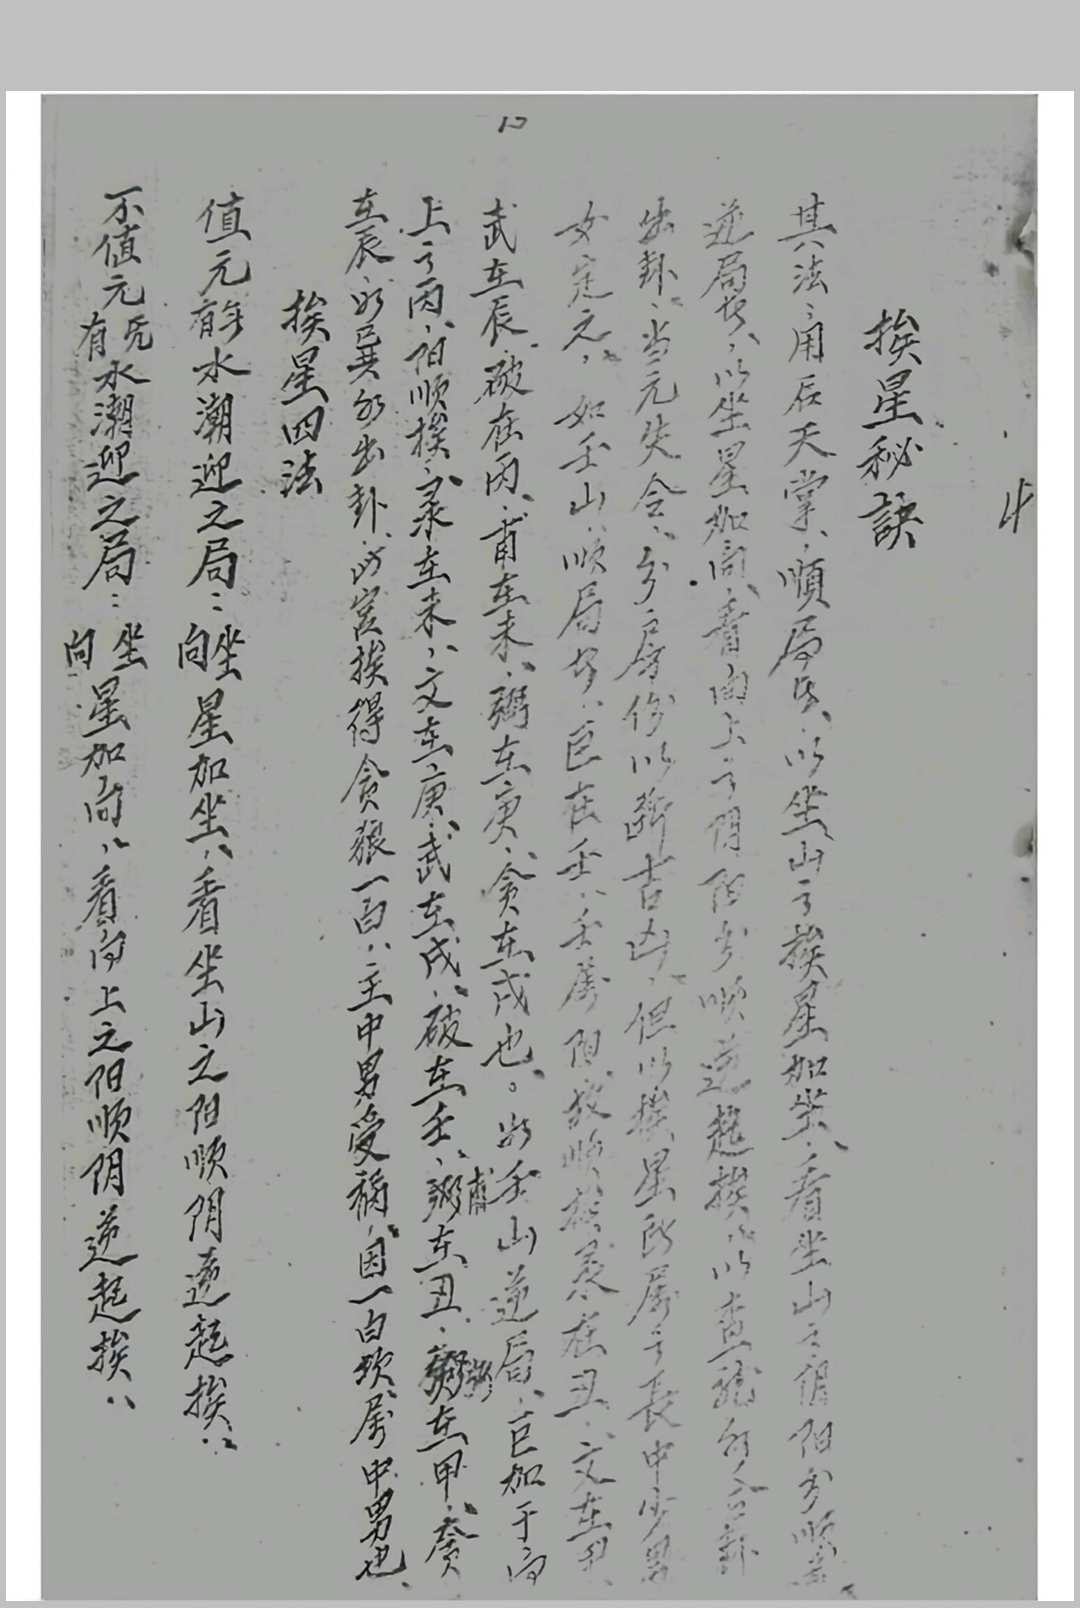 挨星秘诀
其法、用辰天掌、順局者、以坐山之挨星加坐、看坐山之阴阳分順逆
逆局者、以坐星加向、看向上之阴阳分順逆起挨、以查龙水合卦
出卦、当元失令、分房份以断吉凶、但以挨星所属之長中少男
女定之、如壬山順局者、巨在壬、壬属阳故順挨、彔在丑、文在甲、
武在辰、破在丙、甫在未、弼在庚、贪在戍也。 如壬山逆局、巨加于向
上之丙、阳順挨、彔在未、文在庚、武在戍、破在壬、甫在丑、弼在甲、贪
在辰、水出卦、此宫挨得贪狼一白、主中男受祸、因一白坎属中男也、
挨星四法
值元有水潮迎之局：坐向星加坐、看坐山之阳順阴逆起挨、
不值元有无水潮迎之局：坐向星加向、看向上之阳順阴逆起挨、